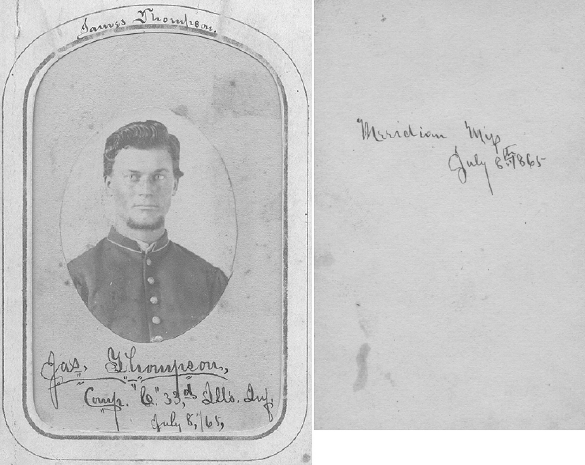 James Thompson.
Jas. Thompson,
Comp. "C" 33,d Ills. Inf,
July 8,/65,
Meridian Mss
July 8th 1865